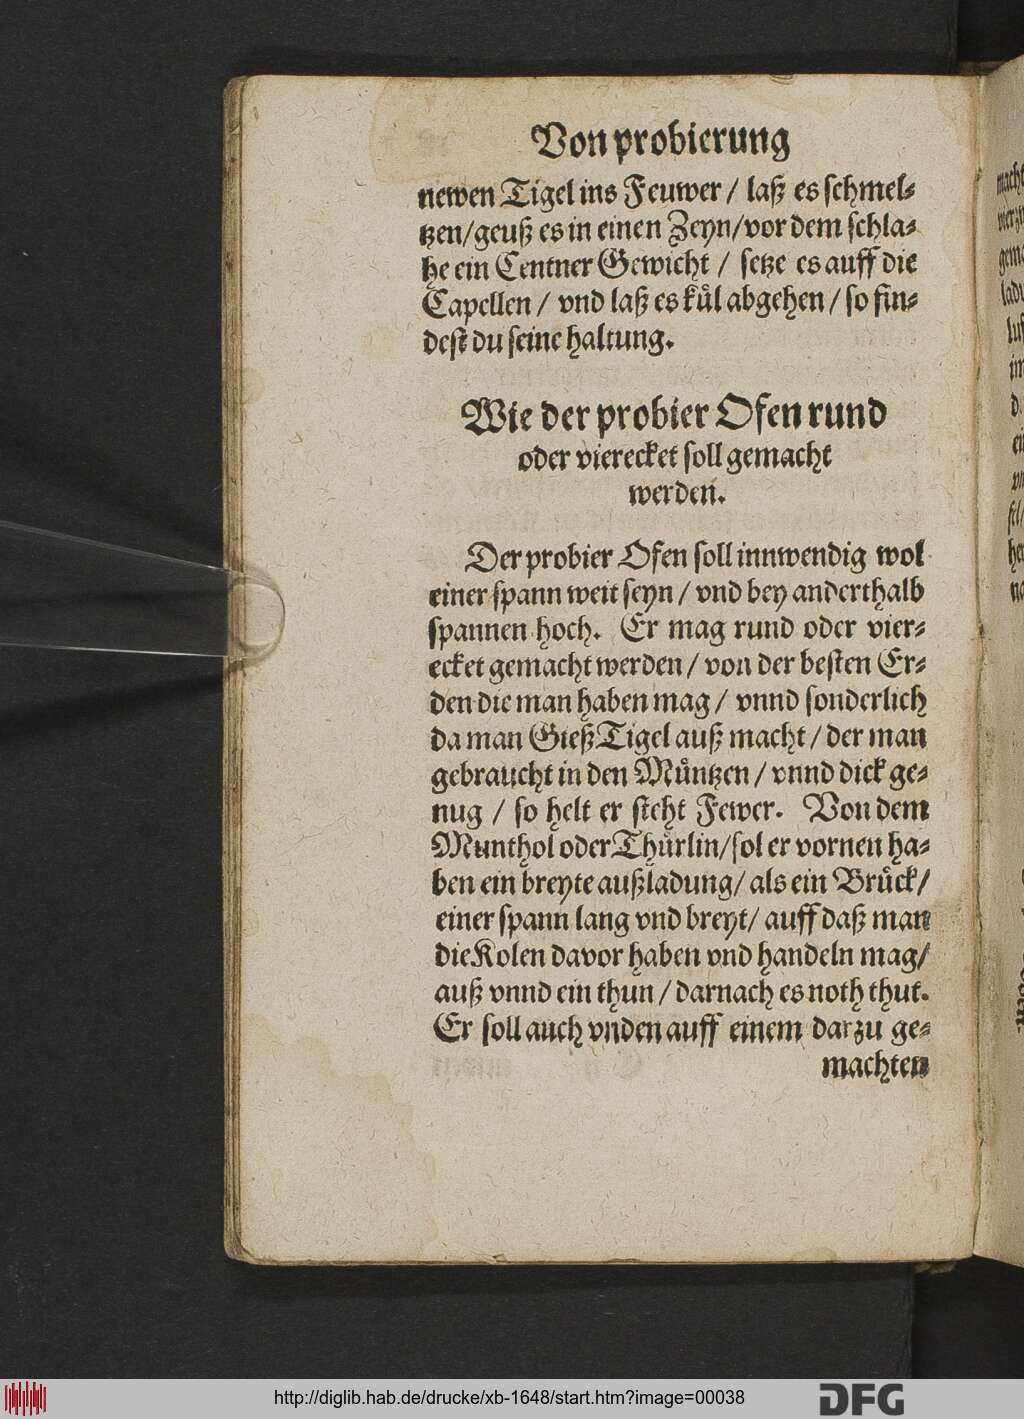 Von probierung
newen Tigel ins Feuwer / laß es schmel⸗
tzen/geuß es in einen Zeyn/vor dem schla⸗
he ein Centner Gewicht / setze es auff die
Capellen / vnd laß es kuͤl abgehen / so fin⸗
dest du seine haltung.
Wie der probier Ofen rund
oder vierecket soll gemacht
werden.
Der probier Ofen soll innwendig wol
einer spann weit seyn / vnd bey anderthalb
spannen hoch. Er mag rund oder vier⸗
ecket gemacht werden / von der besten Er⸗
den die man haben mag / vnnd sonderlich
da man Gieß Tigel auß macht / der man
gebraucht in den Muͤntzen / vnnd dick ge⸗
nug / so helt er steht Fewer. Von dem
Munthol oder Thuͤrlin/sol er vornen ha⸗
ben ein breyte außladung/ als ein Bruͤck/
einer spann lang vnd breyt/ auff daß man
die Kolen davor haben vnd handeln mag/
auß vnnd ein thun / darnach es noth thut.
Er soll auch vnden auff einem darzu ge⸗
machten
http://diglib.hab.de/drucke/xb-1648/start.htm?image=00038
DFG